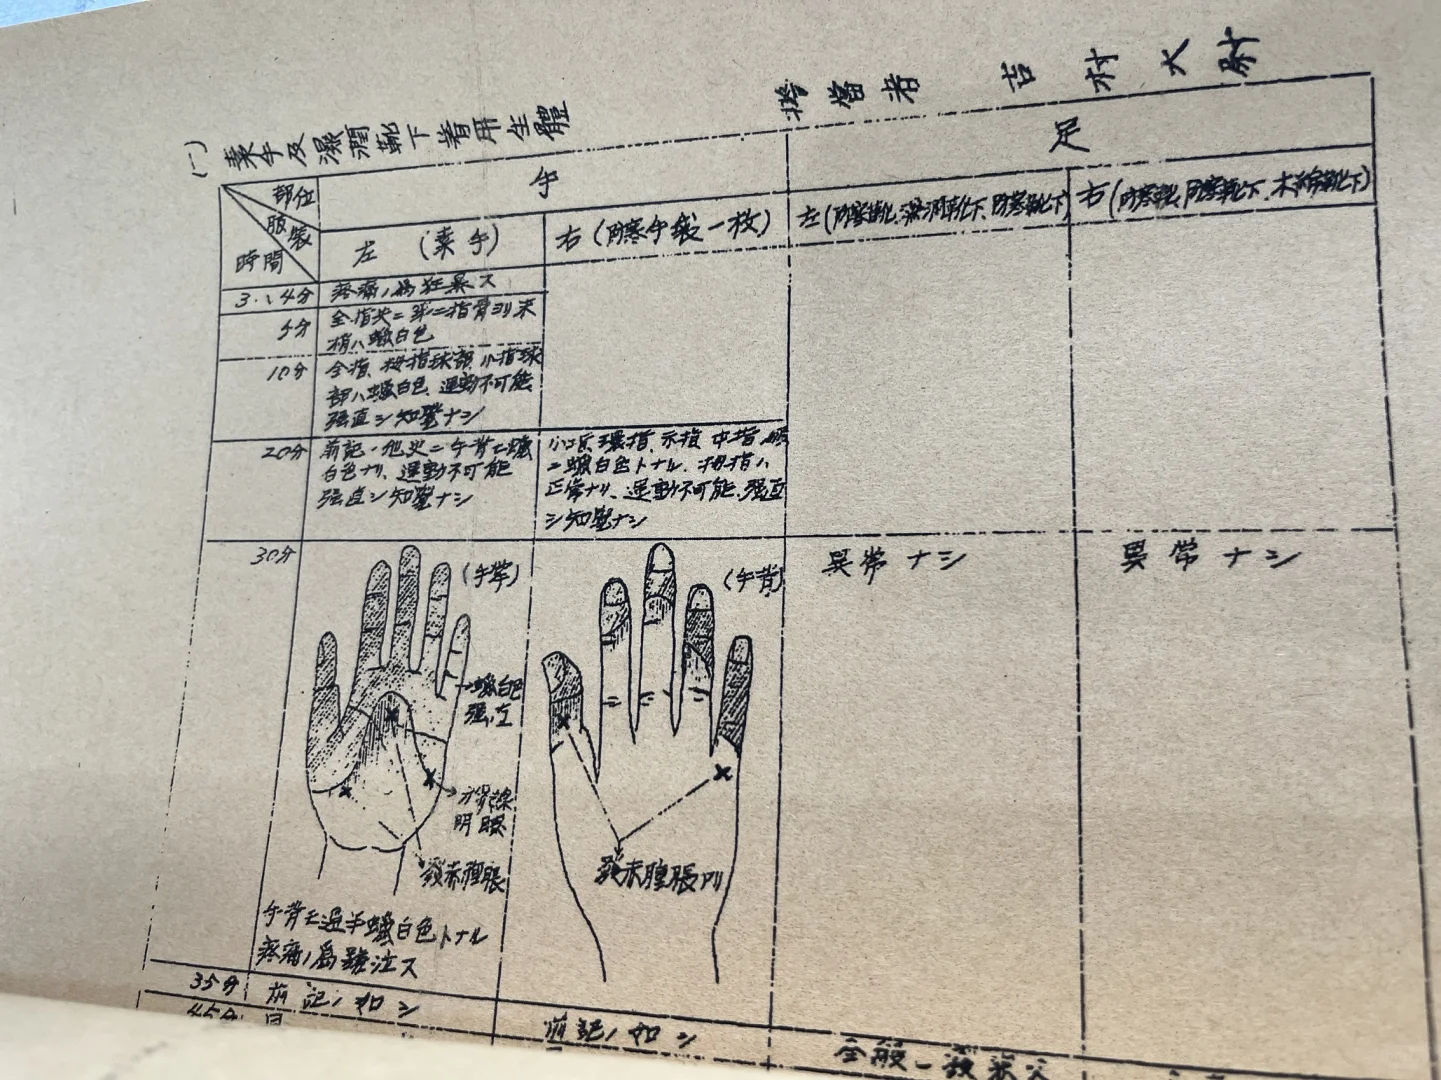 擔當者 吉村大尉
(一) 素手及濕潤靴下着用生體
部位
服裝
時間
手
足
左 (素手)
右 (防寒手袋一枚)
左 (防寒靴、濕潤靴下、防寒靴下)
右 (防寒靴、防寒靴下、木綿靴下)
3、4分
疼痛ノ爲狂暴ス
5分
全指尖ニ第二指骨ヨリ末
梢ハ蠟白色
10分
全指、拇指球部、小指球
部ハ蠟白色、運動不可能
强直シ知覺ナシ
20分
前記ノ他更ニ手背モ蠟
白色ナリ、運動不可能
强直シ知覺ナシ
環指、示指、中指
ニ蠟白色トナル、拇指ハ
正常ナリ、運動不可能、强直
シ知覺ナシ
30分
(手掌)
蠟白色
强直
明瞭
發赤腫脹
手背モ過半蠟白色トナル
疼痛ノ爲號泣ス
(手背)
發赤腫脹アリ
異常ナシ
異常ナシ
35分
前記ノ如シ
前記ノ如シ
45分